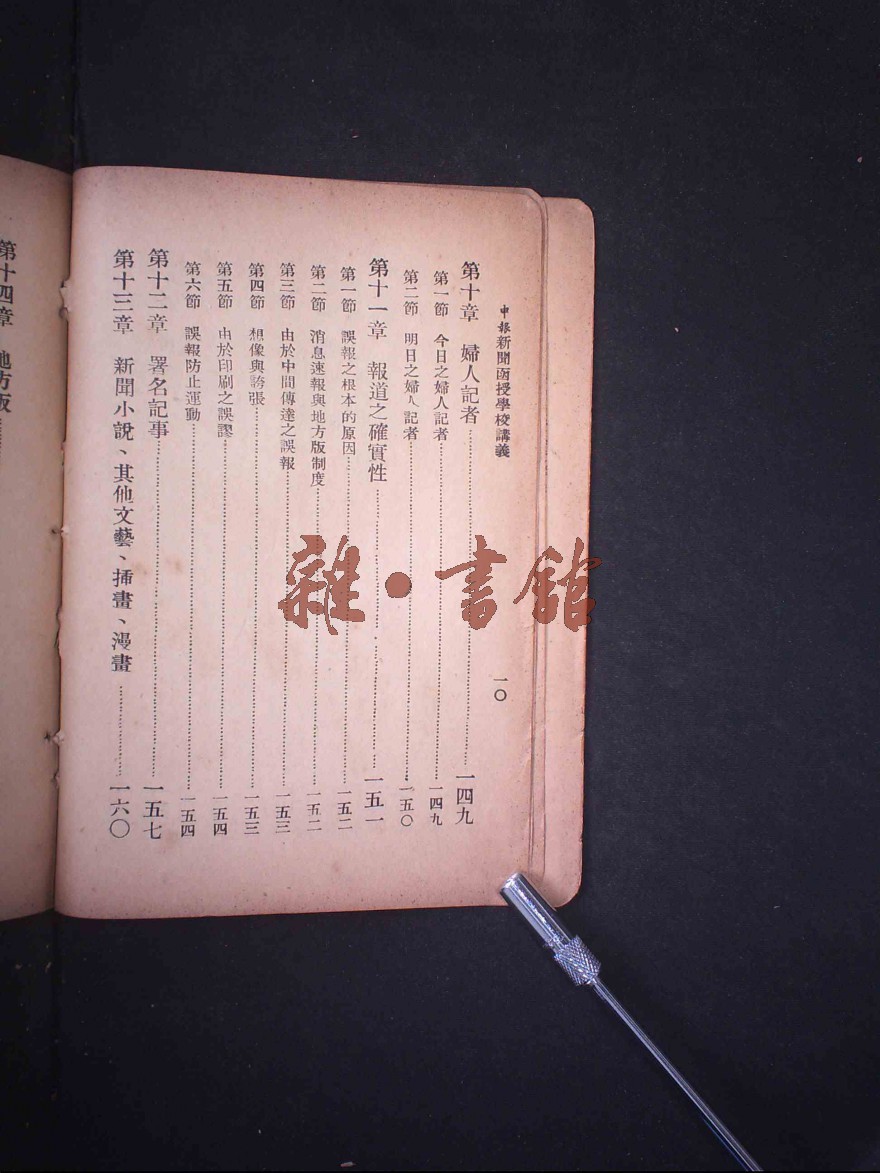 申報新聞函授學校講義
一〇
第十章 婦人記者……一四九
第一節 今日之婦人記者……一四九
第二節 明日之婦人記者……一五〇
第十一章 報道之確實性……一五一
第一節 誤報之根本的原因……一五二
第二節 消息速報與地方版制度……一五二
第三節 由於中間傳達之誤報……一五三
第四節 想像與誇張……一五三
第五節 由於印刷之誤謬……一五四
第六節 誤報防止運動……一五四
第十二章 署名記事……一五七
第十三章 新聞小說、其他文藝、揷畫、漫畫……一六〇
第十四章 地方版
雜·書館